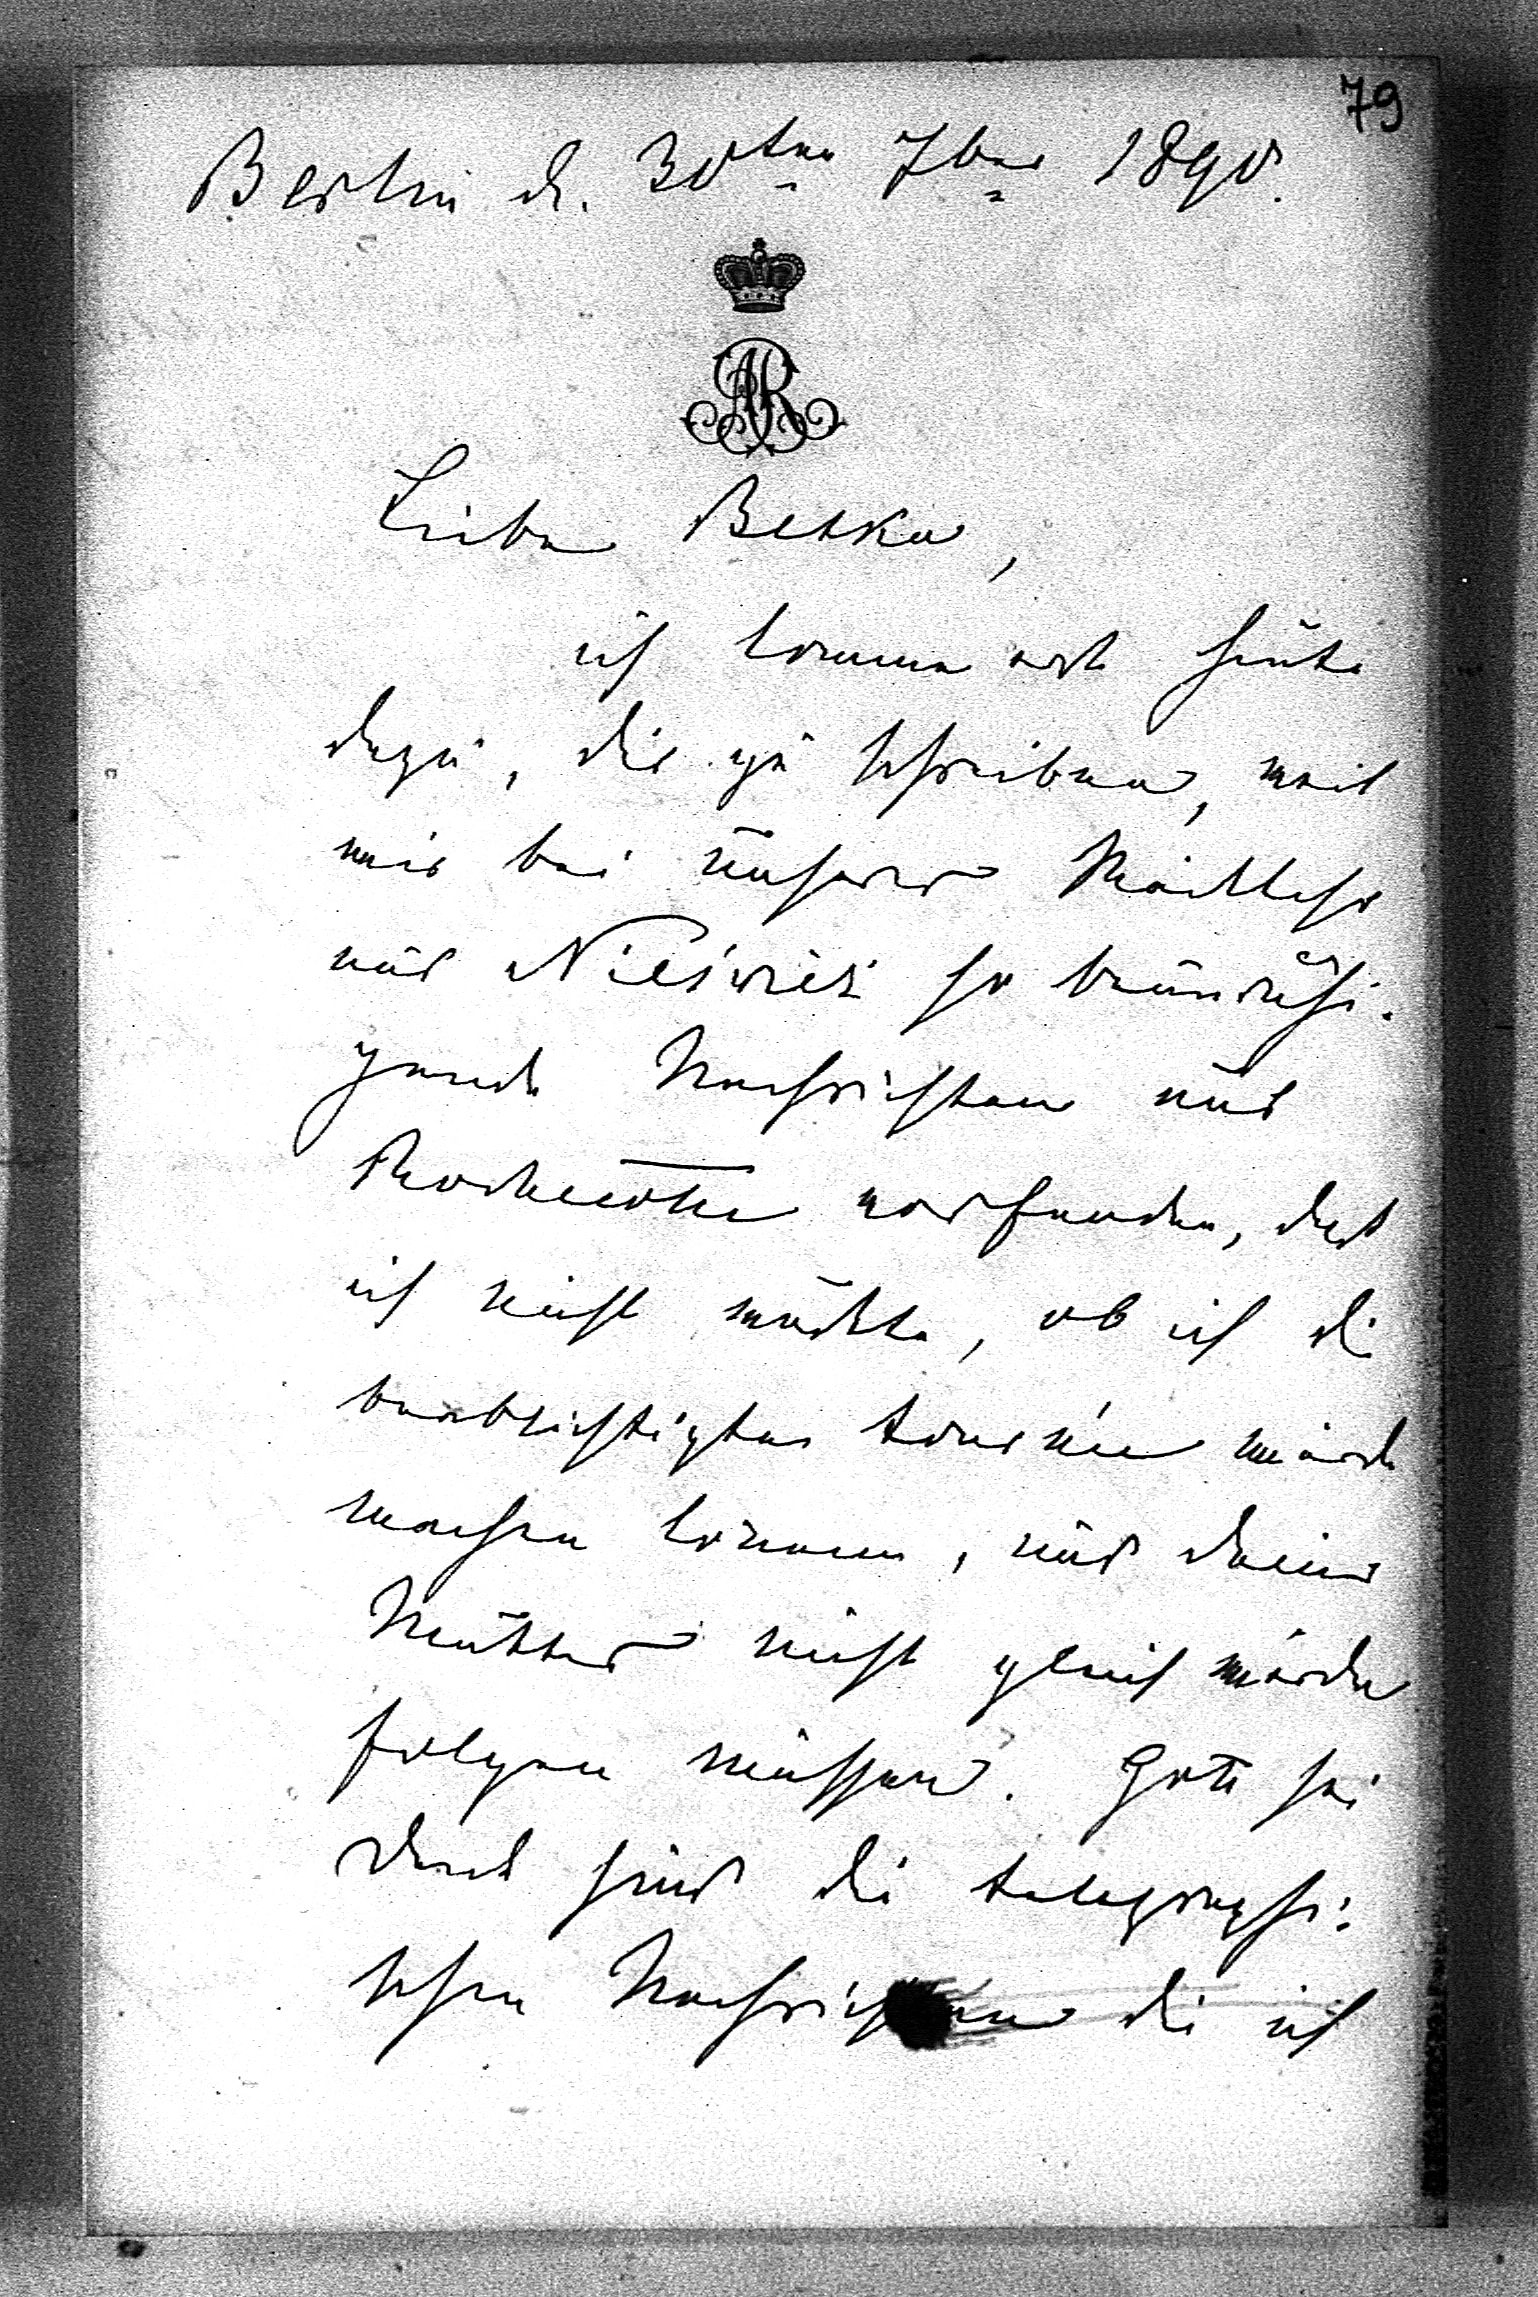 79
Berlin d. 30ten 7ber 1890.
AR
Liebe Betka,
ich komme erst heute
dazu, dir zu schreiben, weil
wir bei unserer Rückkehr
aus Nieśwież so beunruhi-
gende Nachrichten aus
vorfanden, daß
ich nicht wußte, ob ich die
beabsichtigte tournée würde
machen können, und deine
Mutter nicht gleich würde
folgen müssen. Gott sei
Dank sind die telegraphi-
schen Nachrichten die ich